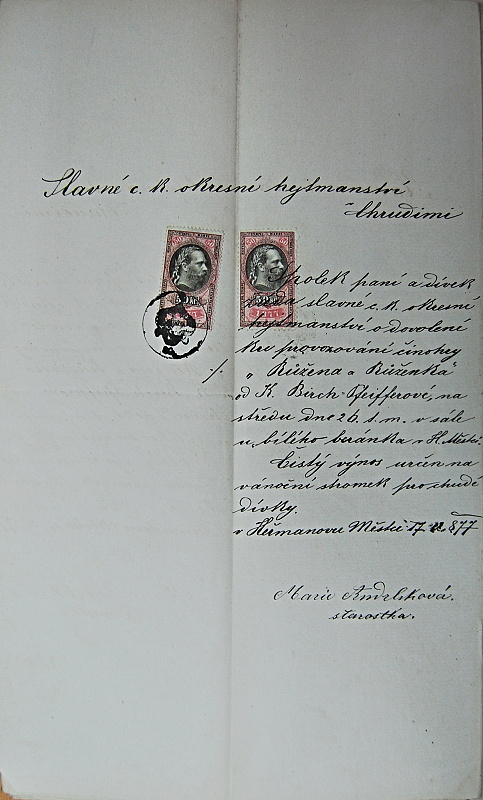 Slavné c. k. okresní hejtmanství
Chrudimi
Spolek paní a dívek
žádá slavné c. k. okresní
hejtmanství o dovolení
ku provozování činohry
„Růžena a Růženka"
od K. Birch-Pfeifferové, na
středu dne 26. t. m. v sále
u „bílého beránka v H. Městci.
Čistý výnos určen na
vánoční stromek pro chudé
dívky.
v Heřmanově Městci 17 877
Marie
starostka.